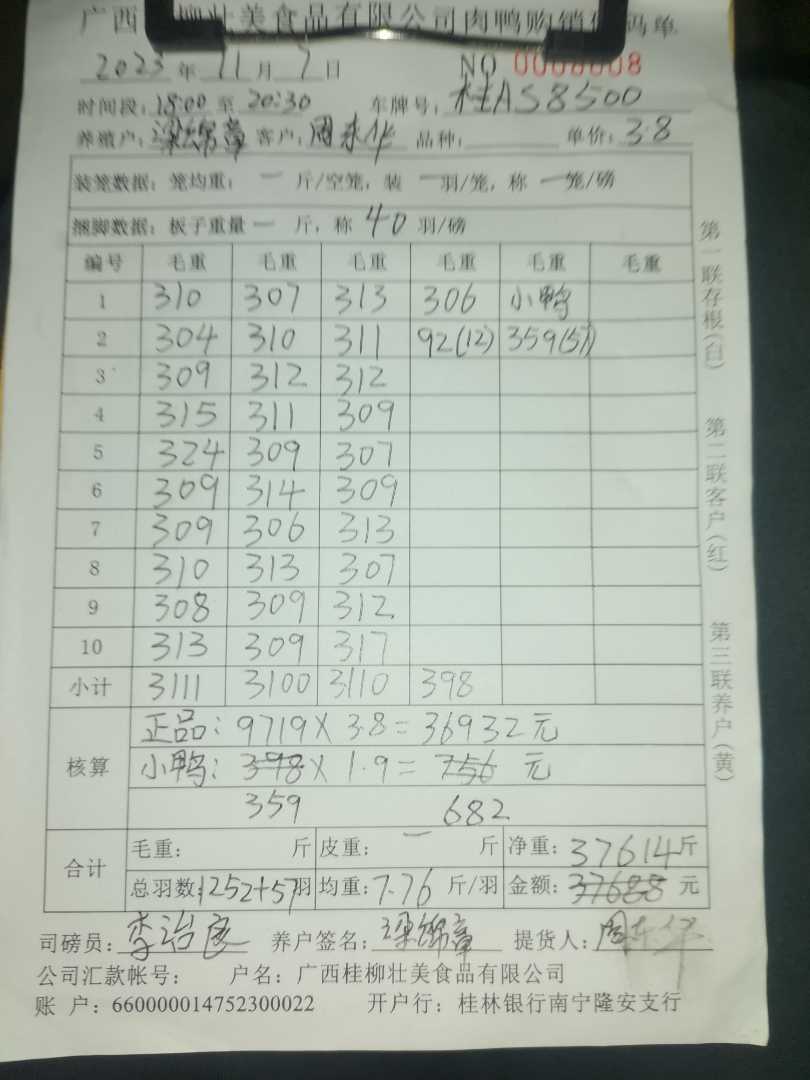 广西 柳壮美食品有限公司肉鸭购销 码单
2023年11月7日 NO 0008008
时间段:18:00至20:30 车牌号:桂AS8500
养殖户:梁锦章 客户:周东华 品种: 单价:3.8
装笼数据:笼均重: 一 斤/空笼,装 一羽/笼,称 一笼/磅
捆脚数据:板子重量一 斤,称 40 羽/磅
编号 毛重 毛重 毛重 毛重 毛重 毛重
1 310 307 313 306 小鸭
2 304 310 311 92(12) 359(57)
3 309 312 312
4 315 311 309
5 324 309 307
6 309 314 309
7 309 306 313
8 310 313 307
9 308 309 312
10 313 309 317
小计 3111 3100 3110 398
核算
正品:9719×3.8=36932元
小鸭:398×1.9=756元
359 682
合计
毛重: 斤 皮重: 一 斤 净重:37614斤
总羽数:1252+57羽 均重:7.76斤/羽 金额:37688元
司磅员:李治良 养户签名:梁锦章 提货人:周东华
公司汇款帐号: 户名:广西桂柳壮美食品有限公司
账 户:660000014752300022 开户行:桂林银行南宁隆安支行
第一联存根(白)
第二联客户(红)
第三联养户(黄)